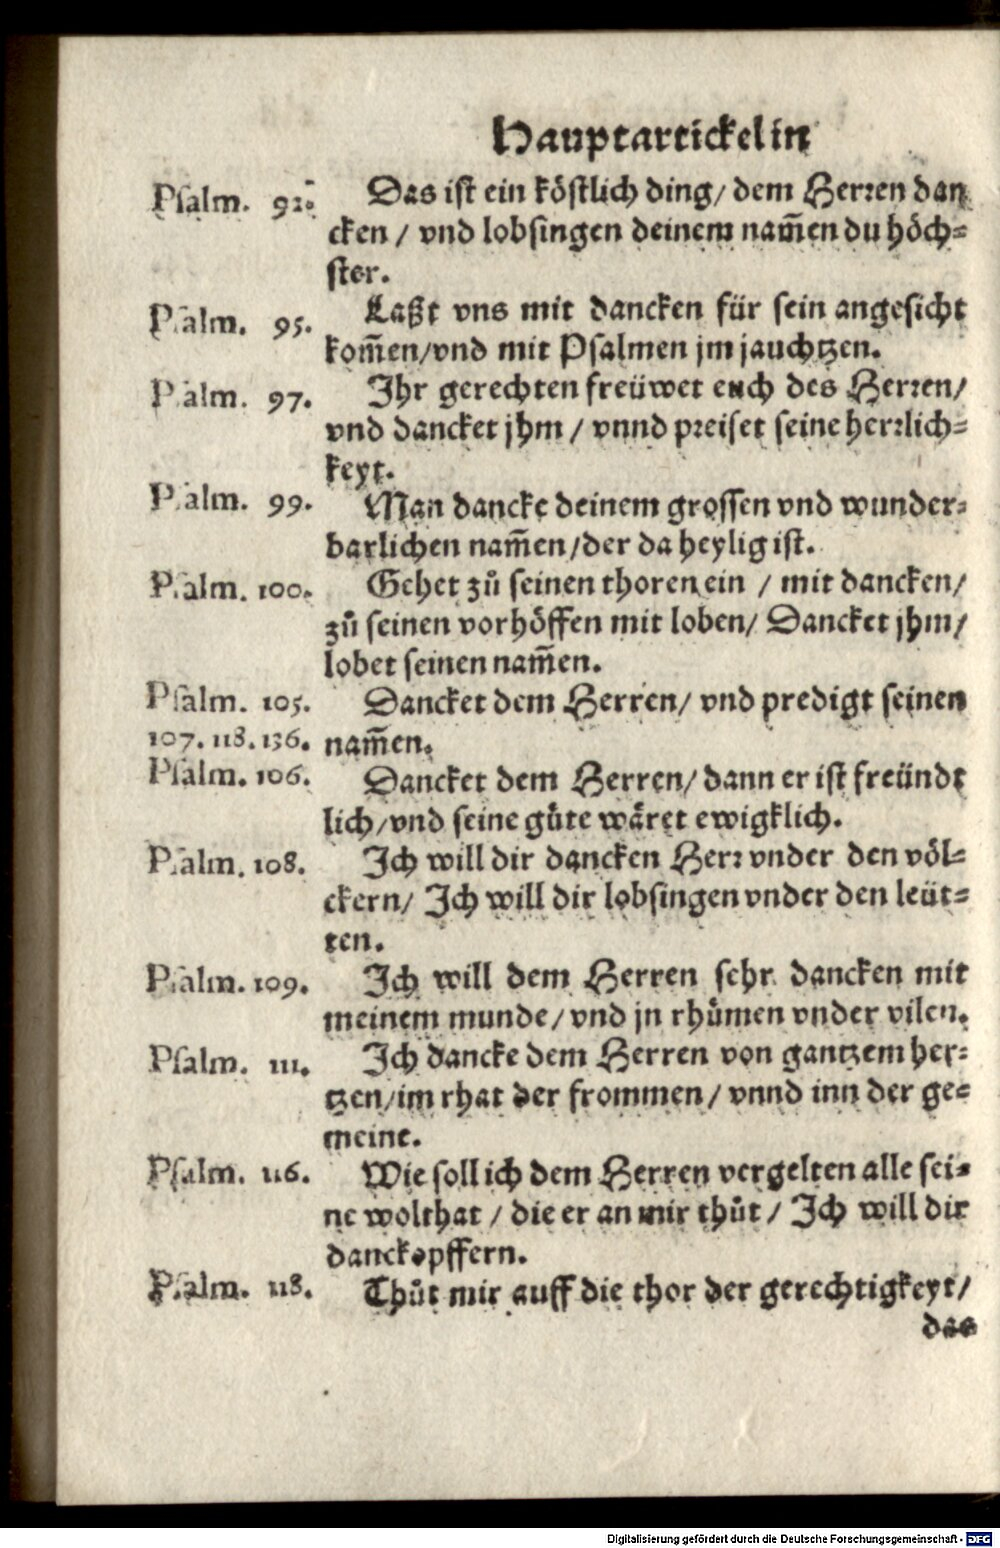 Hauptartickel in
Psalm. 92. Das ist ein köstlich ding/ dem Herren dan
cken / vnd lobsingen deinem nam̄en du höch=
ster.
Psalm. 95. Laßt vns mit dancken für sein angesicht
kom̄en/vnd mit Psalmen jm jauchtzen.
Psalm. 97. Ihr gerechten freüwet euch des Herren/
vnd dancket jhm / vnnd preiset seine herrlich=
keyt.
Psalm. 99. Man dancke deinem grossen vnd wunder=
barlichen nam̄en/der da heylig ist.
Psalm. 100. Gehet zů seinen thoren ein / mit dancken/
zů seinen vorhöffen mit loben/ Dancket jhm/
lobet seinen nam̄en.
Psalm. 105. Dancket dem Herren/ vnd predigt seinen
107. 118. 136. nam̄en.
Psalm. 106. Dancket dem Herren/ dann er ist freündt
lich/vnd seine gůte wäret ewigklich.
Psalm. 108. Ich will dir dancken Herr vnder den völ=
ckern/ Ich will dir lobsingen vnder den leüt=
ten.
Psalm. 109. Ich will dem Herren sehr dancken mit
meinem munde/vnd jn rhůmen vnder vilen.
Psalm. 111. Ich dancke dem Herren von gantzem her=
tzen/im rhat der frommen/ vnnd inn der ge=
meine.
Psalm. 116. Wie soll ich dem Herren vergelten alle sei=
ne wolthat / die er an mir thůt / Ich will dir
danckopffern.
Psalm. 118. Thůt mir auff die thor der gerechtigkeyt/
das
Digitalisierung gefördert durch die Deutsche Forschungsgemeinschaft - DFG